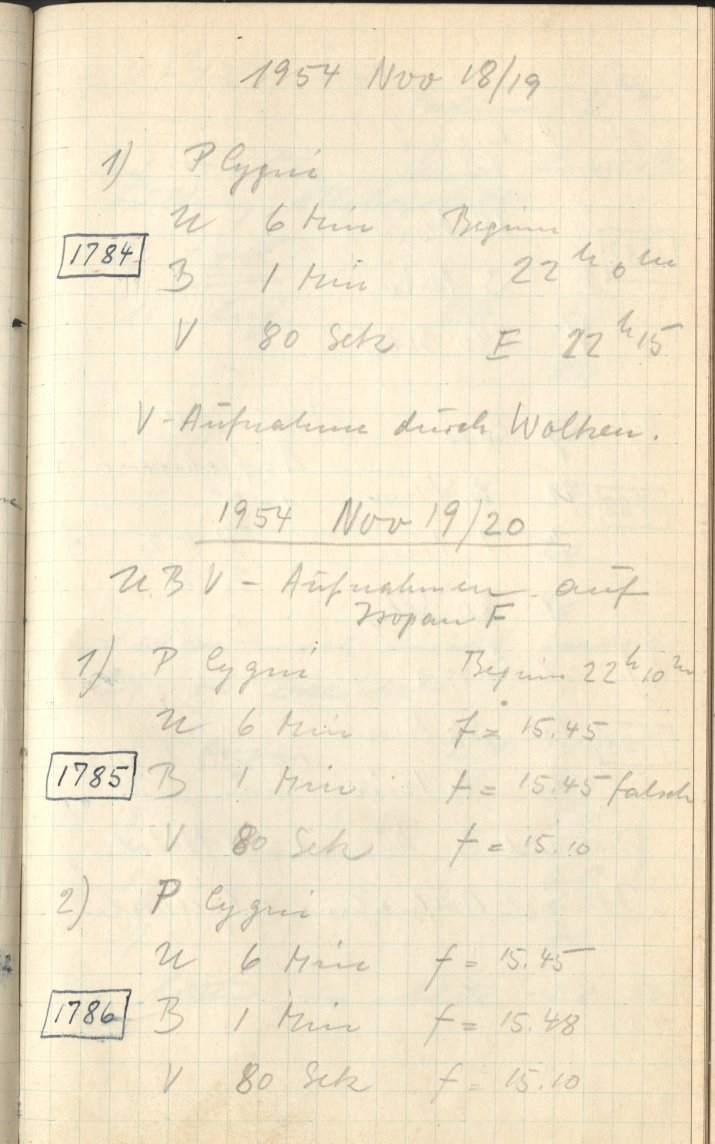 1954 Nov 18/19
1) P Cygni
U 6 Min Beginn
1784
B 1 Min 22h 0m
V 80 Sek E 22h 15
V-Aufnahme durch Wolken.
1954 Nov 19/20
UBV - Aufnahmen auf
Isopan F
1) P Cygni Beginn 22h 10m
U 6 Min f = 15.45
1785 B 1 Min f = 15.45 falsch
V 80 Sek f = 15.10
2) P Cygni
U 6 Min f = 15.45
1786 B 1 Min f = 15.48
V 80 Sek f = 15.10